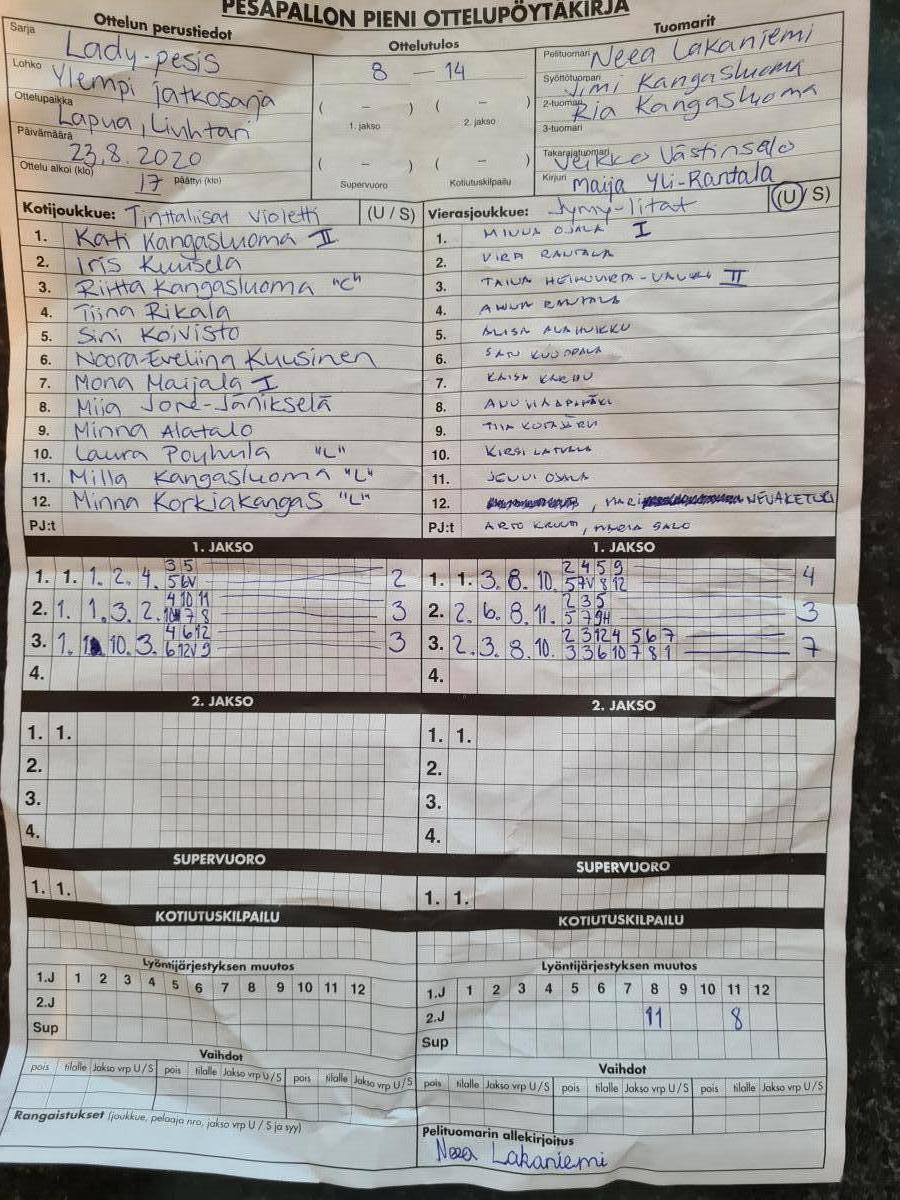 PESÄPALLON PIENI OTTELUPÖYTÄKIRJA
Ottelun perustiedot
Sarja Lady-pesis
Lohko Ylempi jatkosarja
Ottelupaikka Lapua, Liuhtari
Päivämäärä 23.8.2020
Ottelu alkoi (klo) 17 päättyi (klo)
Ottelutulos
8 — 14
( – ) ( – )
1. jakso 2. jakso
( – ) ( – )
Supervuoro Kotiutuskilpailu
Tuomarit
Pelituomari Neea Lakaniemi
Syöttötuomari Jimi Kangasluoma
2-tuomari Ria Kangasluoma
3-tuomari
Takarajatuomari Veikko Västinsalo
Kirjuri Maija Yli-Rantala
Kotijoukkue: Tinttaliisat Violetti (U / S)
1. Kati Kangasluoma II
2. Iris Kuusela
3. Riitta Kangasluoma "C"
4. Tiina Rikala
5. Sini Koivisto
6. Noora-Eveliina Kuusinen
7. Mona Maijala I
8. Miia Jone-Jänikselä
9. Minna Alatalo
10. Laura Pouhula "L"
11. Milla Kangasluoma "L"
12. Minna Korkiakangas "L"
PJ:t
Vierasjoukkue: Jymy-litat (U / S)
1. MINNA OJALA I
2. VIRPI RANTALA
3. TAINA HEIMOVIRTA- II
4. ANNA RANTALA
5. ALISA ALAHUIKKU
6. SATU
7. KAISA KARHU
8. ANU HAAPAMÄKI
9. TIIA KOTAJÄRVI
10. KIRSI LATVALA
11. JENNI OJALA
12. , MARI NEVAKETO
PJ:t ARTO , MARIA SALO
1. JAKSO
1. 1. 1. 2. 4. 3 5 2
5 6V
2. 1. 1. 3. 2. 4 10 11 3
7 8
3. 1. 10. 3. 4 6 12 3
6 12V 9
4.
1. JAKSO
1. 1. 3. 8. 10. 2 4 5 9 4
5 7V 8 12
2. 2. 6. 8. 11. 2 3 5 3
5 7 9H
3. 2. 3. 8. 10. 2 3 12 4 5 6 7 7
3 3 6 10 7 8 1
4.
2. JAKSO
1. 1.
2.
3.
4.
2. JAKSO
1. 1.
2.
3.
4.
SUPERVUORO
1. 1.
SUPERVUORO
1. 1.
KOTIUTUSKILPAILU
KOTIUTUSKILPAILU
Lyöntijärjestyksen muutos
1.J 1 2 3 4 5 6 7 8 9 10 11 12
2.J
Sup
Lyöntijärjestyksen muutos
1.J 1 2 3 4 5 6 7 8 9 10 11 12
2.J 11 8
Sup
Vaihdot
pois tilalle Jakso vrp U / S pois tilalle Jakso vrp U / S pois tilalle Jakso vrp U / S
Vaihdot
pois tilalle Jakso vrp U / S pois tilalle Jakso vrp U / S pois tilalle Jakso vrp U / S
Rangaistukset (joukkue, pelaaja nro, jakso vrp U / S ja syy)
Pelituomarin allekirjoitus
Neea Lakaniemi